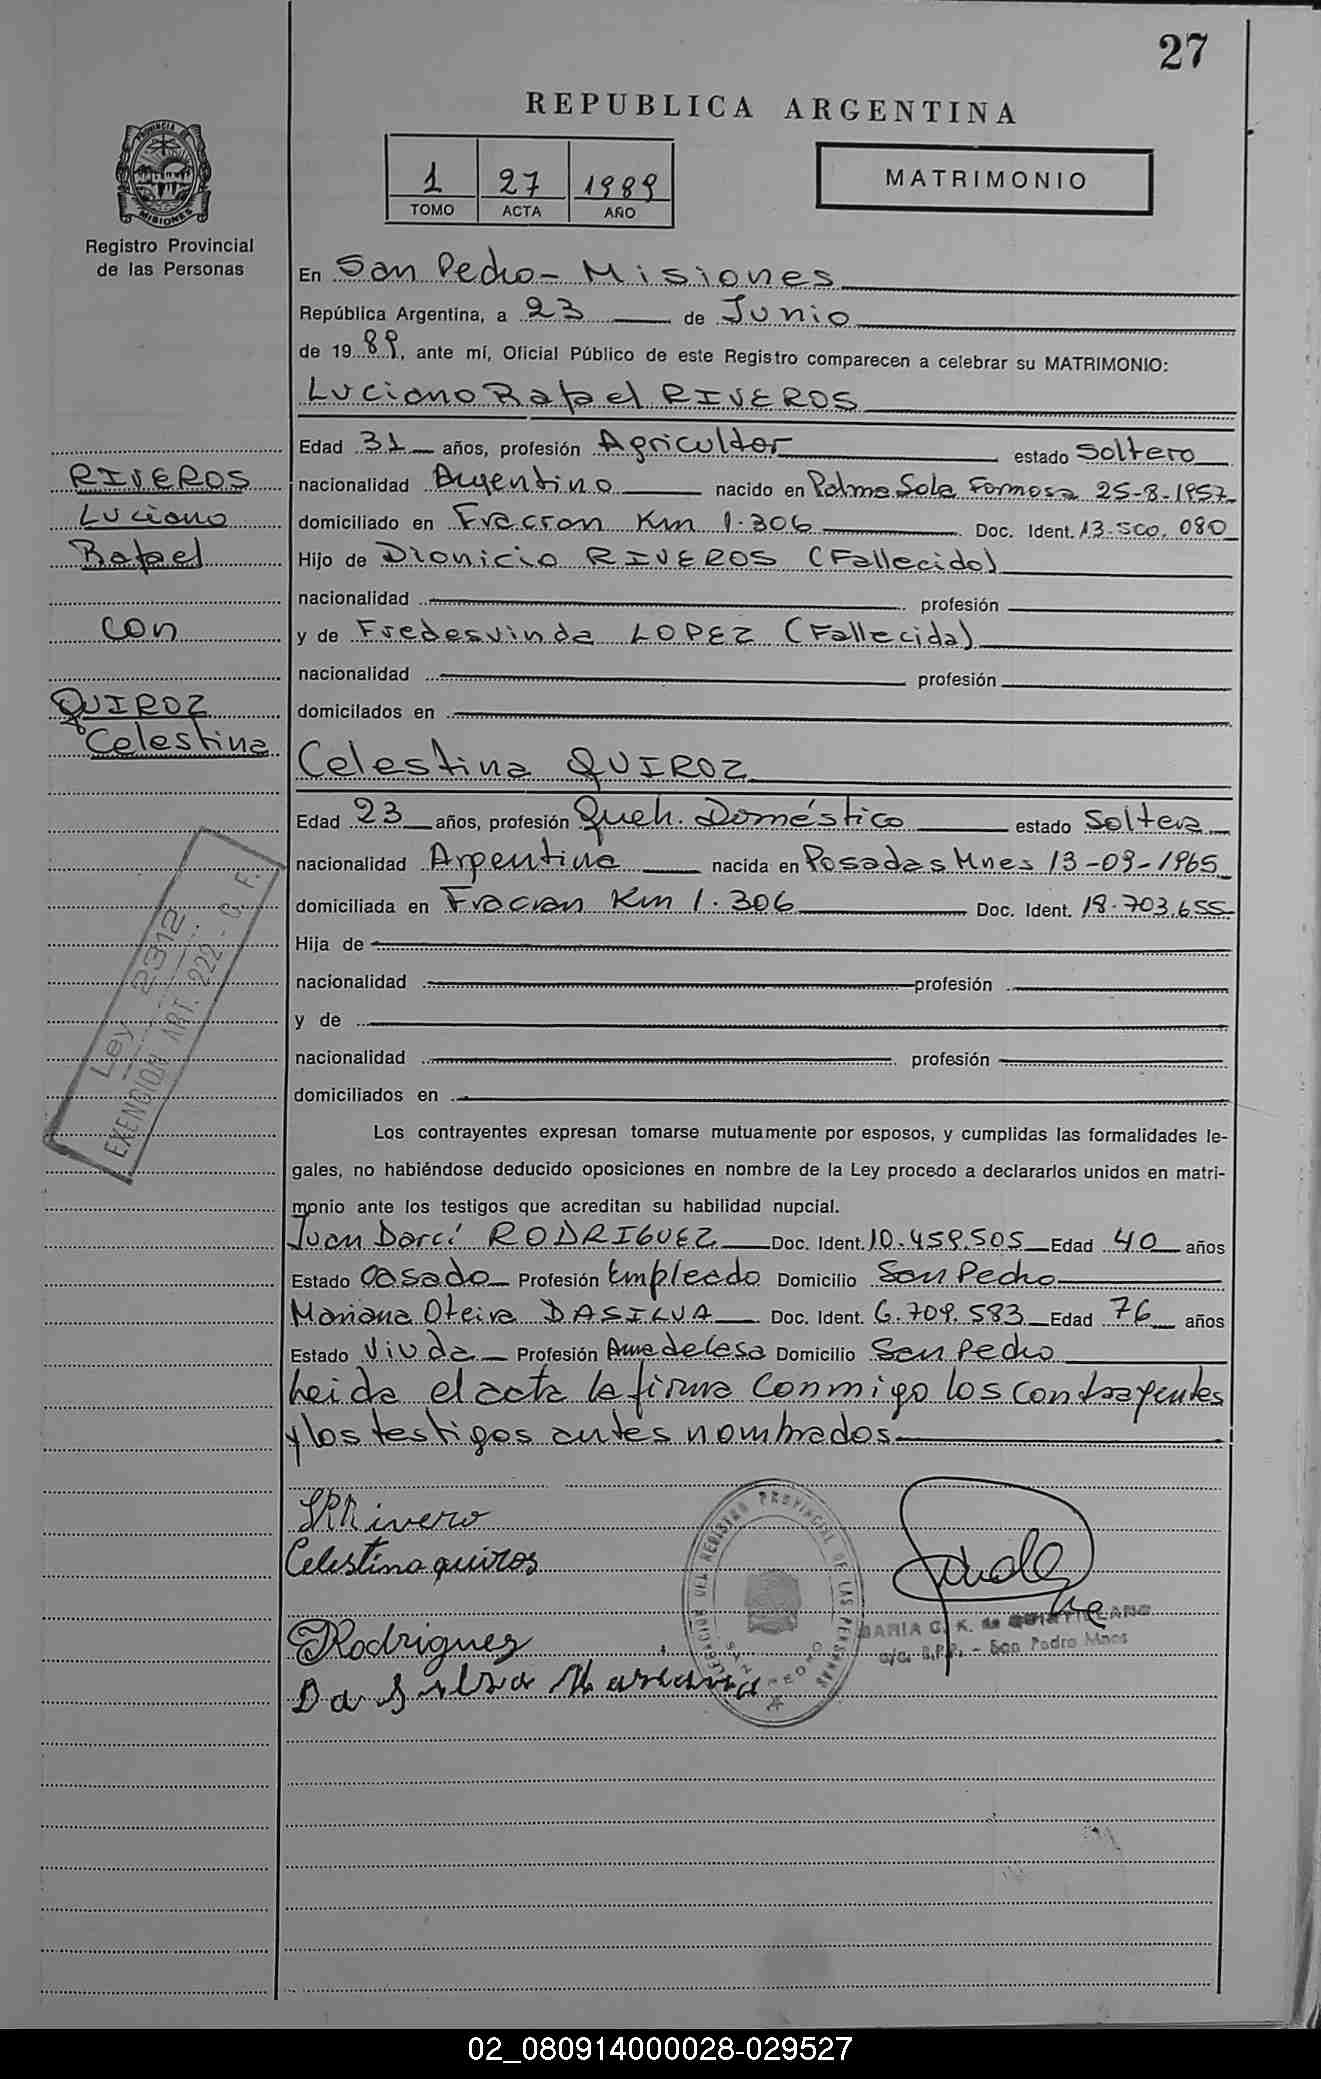 27
REPUBLICA ARGENTINA
1 27 1989
TOMO ACTA AÑO
MATRIMONIO
PROVINCIA DE MISIONES
Registro Provincial
de las Personas
En San Pedro - Misiones
República Argentina, a 23 de Junio
de 1989, ante mí, Oficial Público de este Registro comparecen a celebrar su MATRIMONIO:
Luciano Rafael RIVEROS
Edad 31 años, profesión Agricultor estado Soltero
nacionalidad Argentino nacido en Palma Sola Formosa 25-8-1957
domiciliado en Fracran Km 1.306 Doc. Ident. 13.500.080
Hijo de Dionicio RIVEROS (Fallecido)
nacionalidad profesión
y de Fredesvinda LOPEZ (Fallecida)
nacionalidad profesión
domicilados en
RIVEROS
Luciano
Rafael
con
QUIROZ
Celestina
Celestina QUIROZ
Edad 23 años, profesión Queh. Doméstico estado Soltera
nacionalidad Argentina nacida en Posadas Mnes 13-09-1965
domiciliada en Fracran Km 1.306 Doc. Ident. 18.703.655
Hija de
nacionalidad profesión
y de
nacionalidad profesión
domiciliados en
Ley 2312
EXENCION ART. 222 - C. F.
Los contrayentes expresan tomarse mutuamente por esposos, y cumplidas las formalidades le-
gales, no habiéndose deducido oposiciones en nombre de la Ley procedo a declararlos unidos en matri-
monio ante los testigos que acreditan su habilidad nupcial.
Juan Darcí RODRIGUEZ Doc. Ident. 10.459.505 Edad 40 años
Estado Casado Profesión Empleado Domicilio San Pedro
Mariana Oteira DASILVA Doc. Ident. 6.709.583 Edad 76 años
Estado Viuda Profesión Ama de Casa Domicilio San Pedro
Leida el acta la firma conmigo los contrayentes
y los testigos antes nombrados
LRRivero
Celestina quiros
Rodriguez
Da Silva Mariana
DELEGACION DEL REGISTRO PROVINCIAL DE LAS PERSONAS
SAN PEDRO
MARIA C. K. de QUINTILLANO
a/c. R.P.P. - San Pedro Mnes
02_080914000028-029527